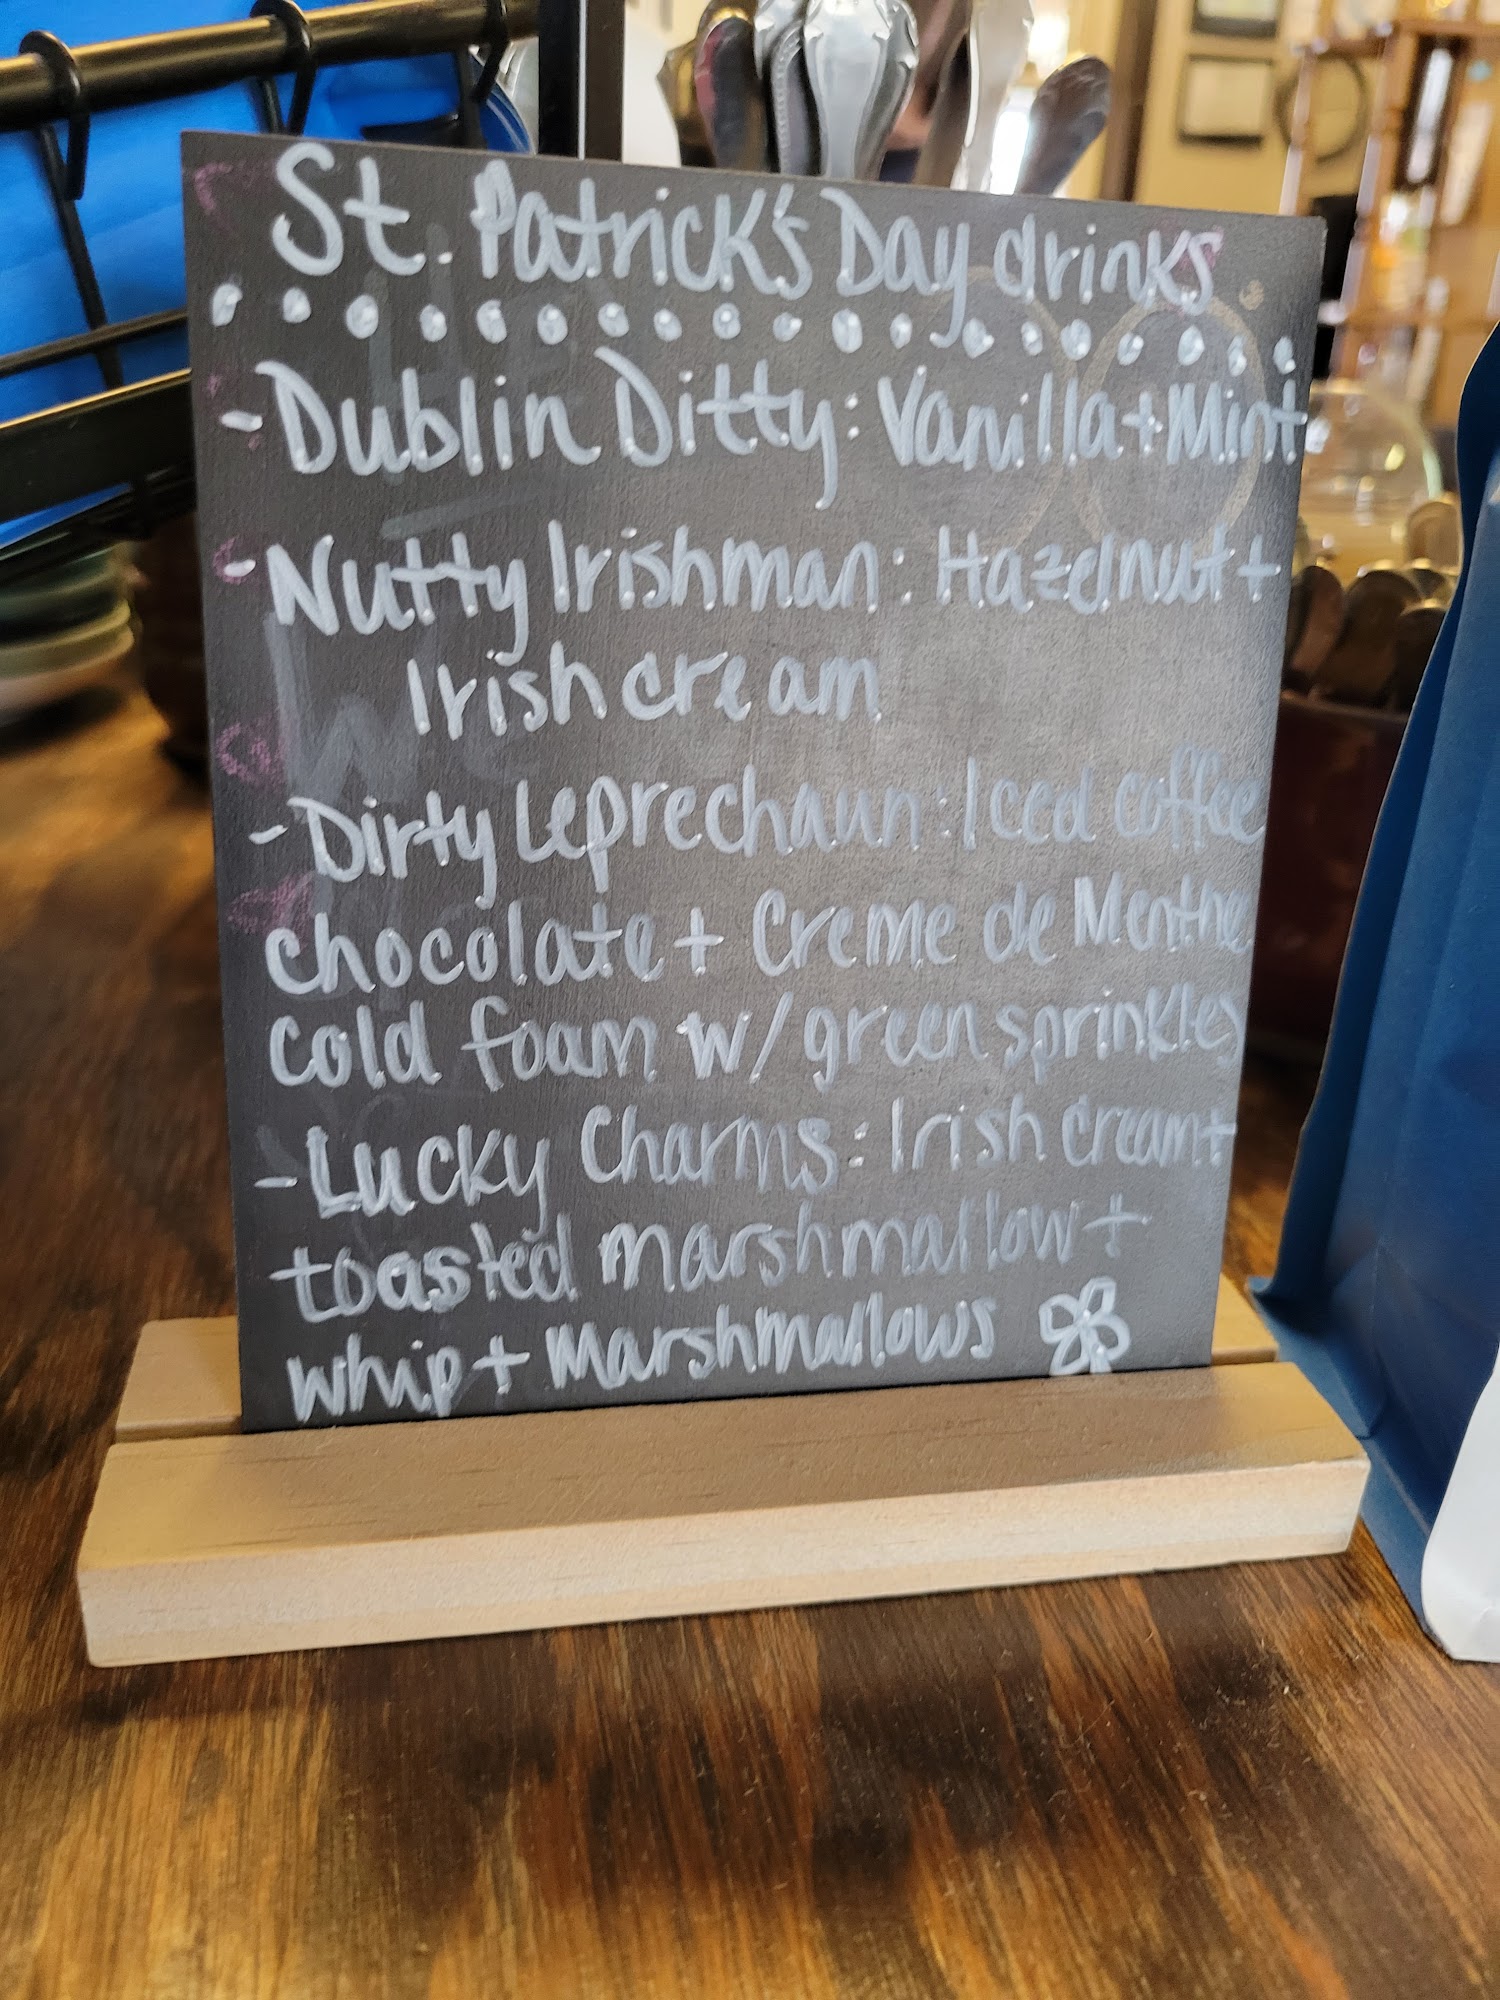 St. Patrick's Day drinks
- Dublin Ditty: Vanilla + Mint
- Nutty Irishman: Hazelnut +
Irish cream
- Dirty Leprechaun: Iced coffee
chocolate + Creme de Menthe
cold foam w/ green sprinkles
- Lucky Charms: Irish cream +
toasted marshmallow +
whip + Marshmallows